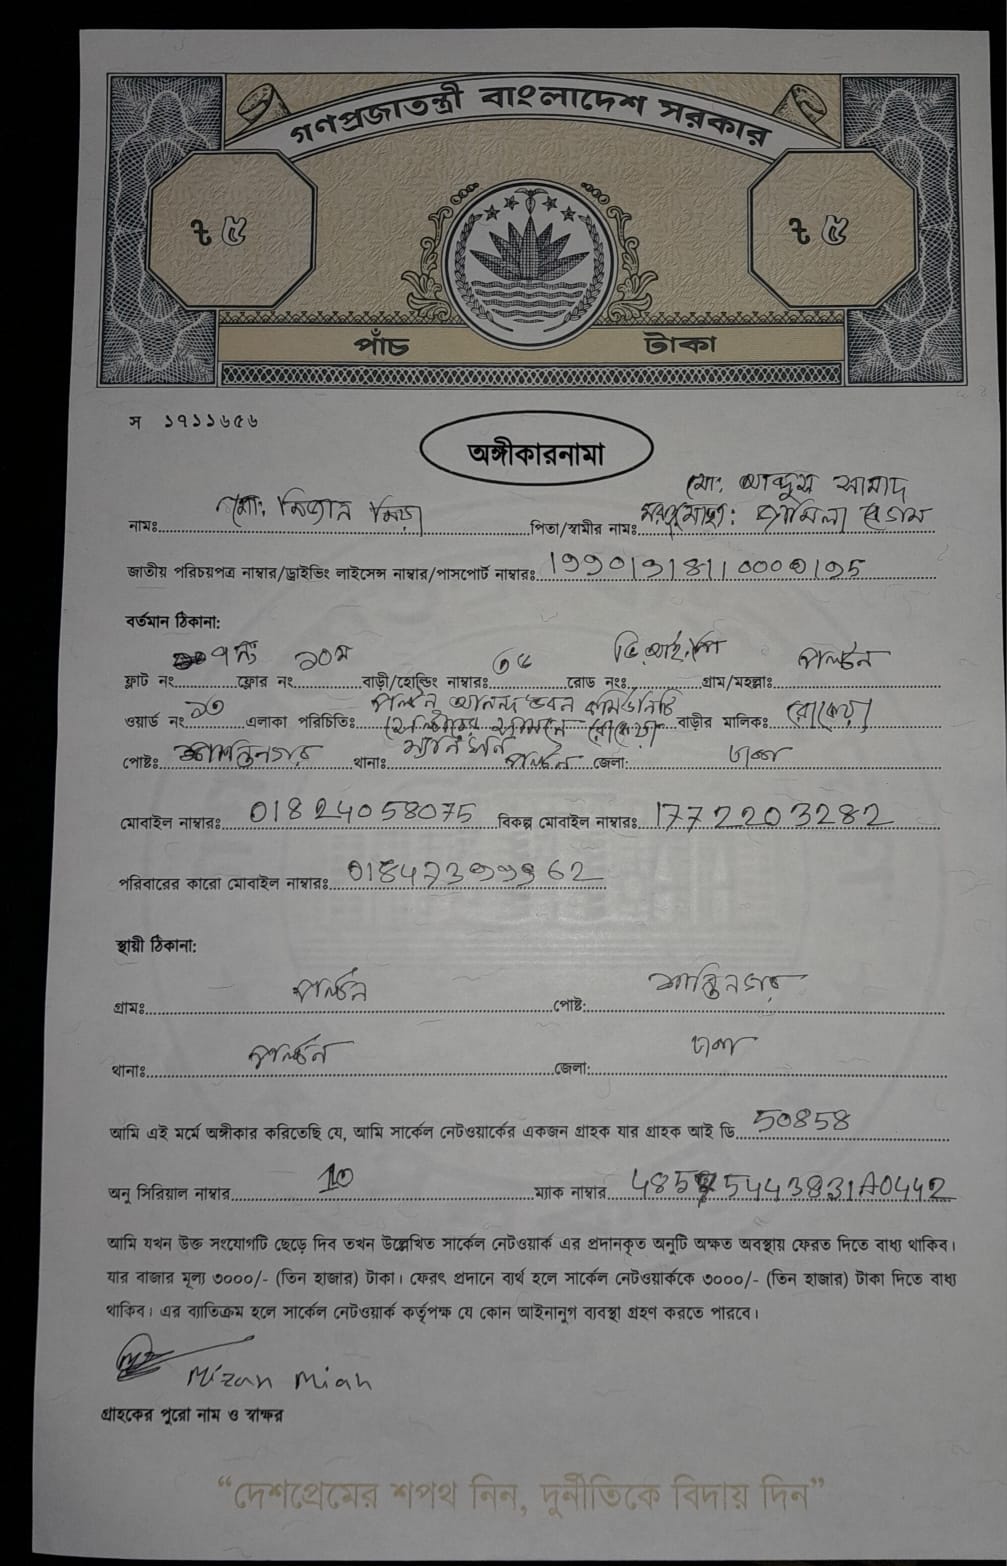 গণপ্রজাতন্ত্রী বাংলাদেশ সরকার
৳ ৫
৳ ৫
পাঁচ টাকা
স ১৭১১৬৫৬
অঙ্গীকারনামা
মো: আব্দুস সামাদ
নামঃ মো: মিজান মিয়া পিতা/স্বামীর নামঃ জামিলা বেগম
জাতীয় পরিচয়পত্র নাম্বার/ড্রাইভিং লাইসেন্স নাম্বার/পাসপোর্ট নাম্বারঃ
বর্তমান ঠিকানা:
ফ্লাট নং ৭নং ফ্লোর নং ১০ম বাড়ী/হোল্ডিং নাম্বারঃ রোড নং ভি,আই,পি গ্রাম/মহল্লাঃ পল্টন
পল্টন আনন্দ ভবন কমিউনিটি
ওয়ার্ড নং ১৩ এলাকা পরিচিতিঃ সেন্টারের সামনে বাড়ীর মালিকঃ
পোষ্টঃ শান্তিনগর থানাঃ পল্টন জেলা: ঢাকা
মোবাইল নাম্বারঃ 01824058075 বিকল্প মোবাইল নাম্বারঃ 1772203282
পরিবারের কারো মোবাইল নাম্বারঃ
স্থায়ী ঠিকানা:
গ্রামঃ পল্টন পোষ্ট: শান্তিনগর
থানাঃ পল্টন জেলা: ঢাকা
আমি এই মর্মে অঙ্গীকার করিতেছি যে, আমি সার্কেল নেটওয়ার্কের একজন গ্রাহক যার গ্রাহক আই ডি 50858
অনু সিরিয়াল নাম্বার 10 ম্যাক নাম্বার
আমি যখন উক্ত সংযোগটি ছেড়ে দিব তখন উল্লেখিত সার্কেল নেটওয়ার্ক এর প্রদানকৃত অনুটি অক্ষত অবস্থায় ফেরত দিতে বাধ্য থাকিব।
যার বাজার মূল্য ৩০০০/- (তিন হাজার) টাকা। ফেরৎ প্রদানে ব্যর্থ হলে সার্কেল নেটওয়ার্ককে ৩০০০/- (তিন হাজার) টাকা দিতে বাধ্য
থাকিব। এর ব্যাতিক্রম হলে সার্কেল নেটওয়ার্ক কর্তৃপক্ষ যে কোন আইনানুগ ব্যবস্থা গ্রহণ করতে পারবে।
Mizan Miah
গ্রাহকের পুরো নাম ও স্বাক্ষর
“দেশপ্রেমের শপথ নিন, দুর্নীতিকে বিদায় দিন”